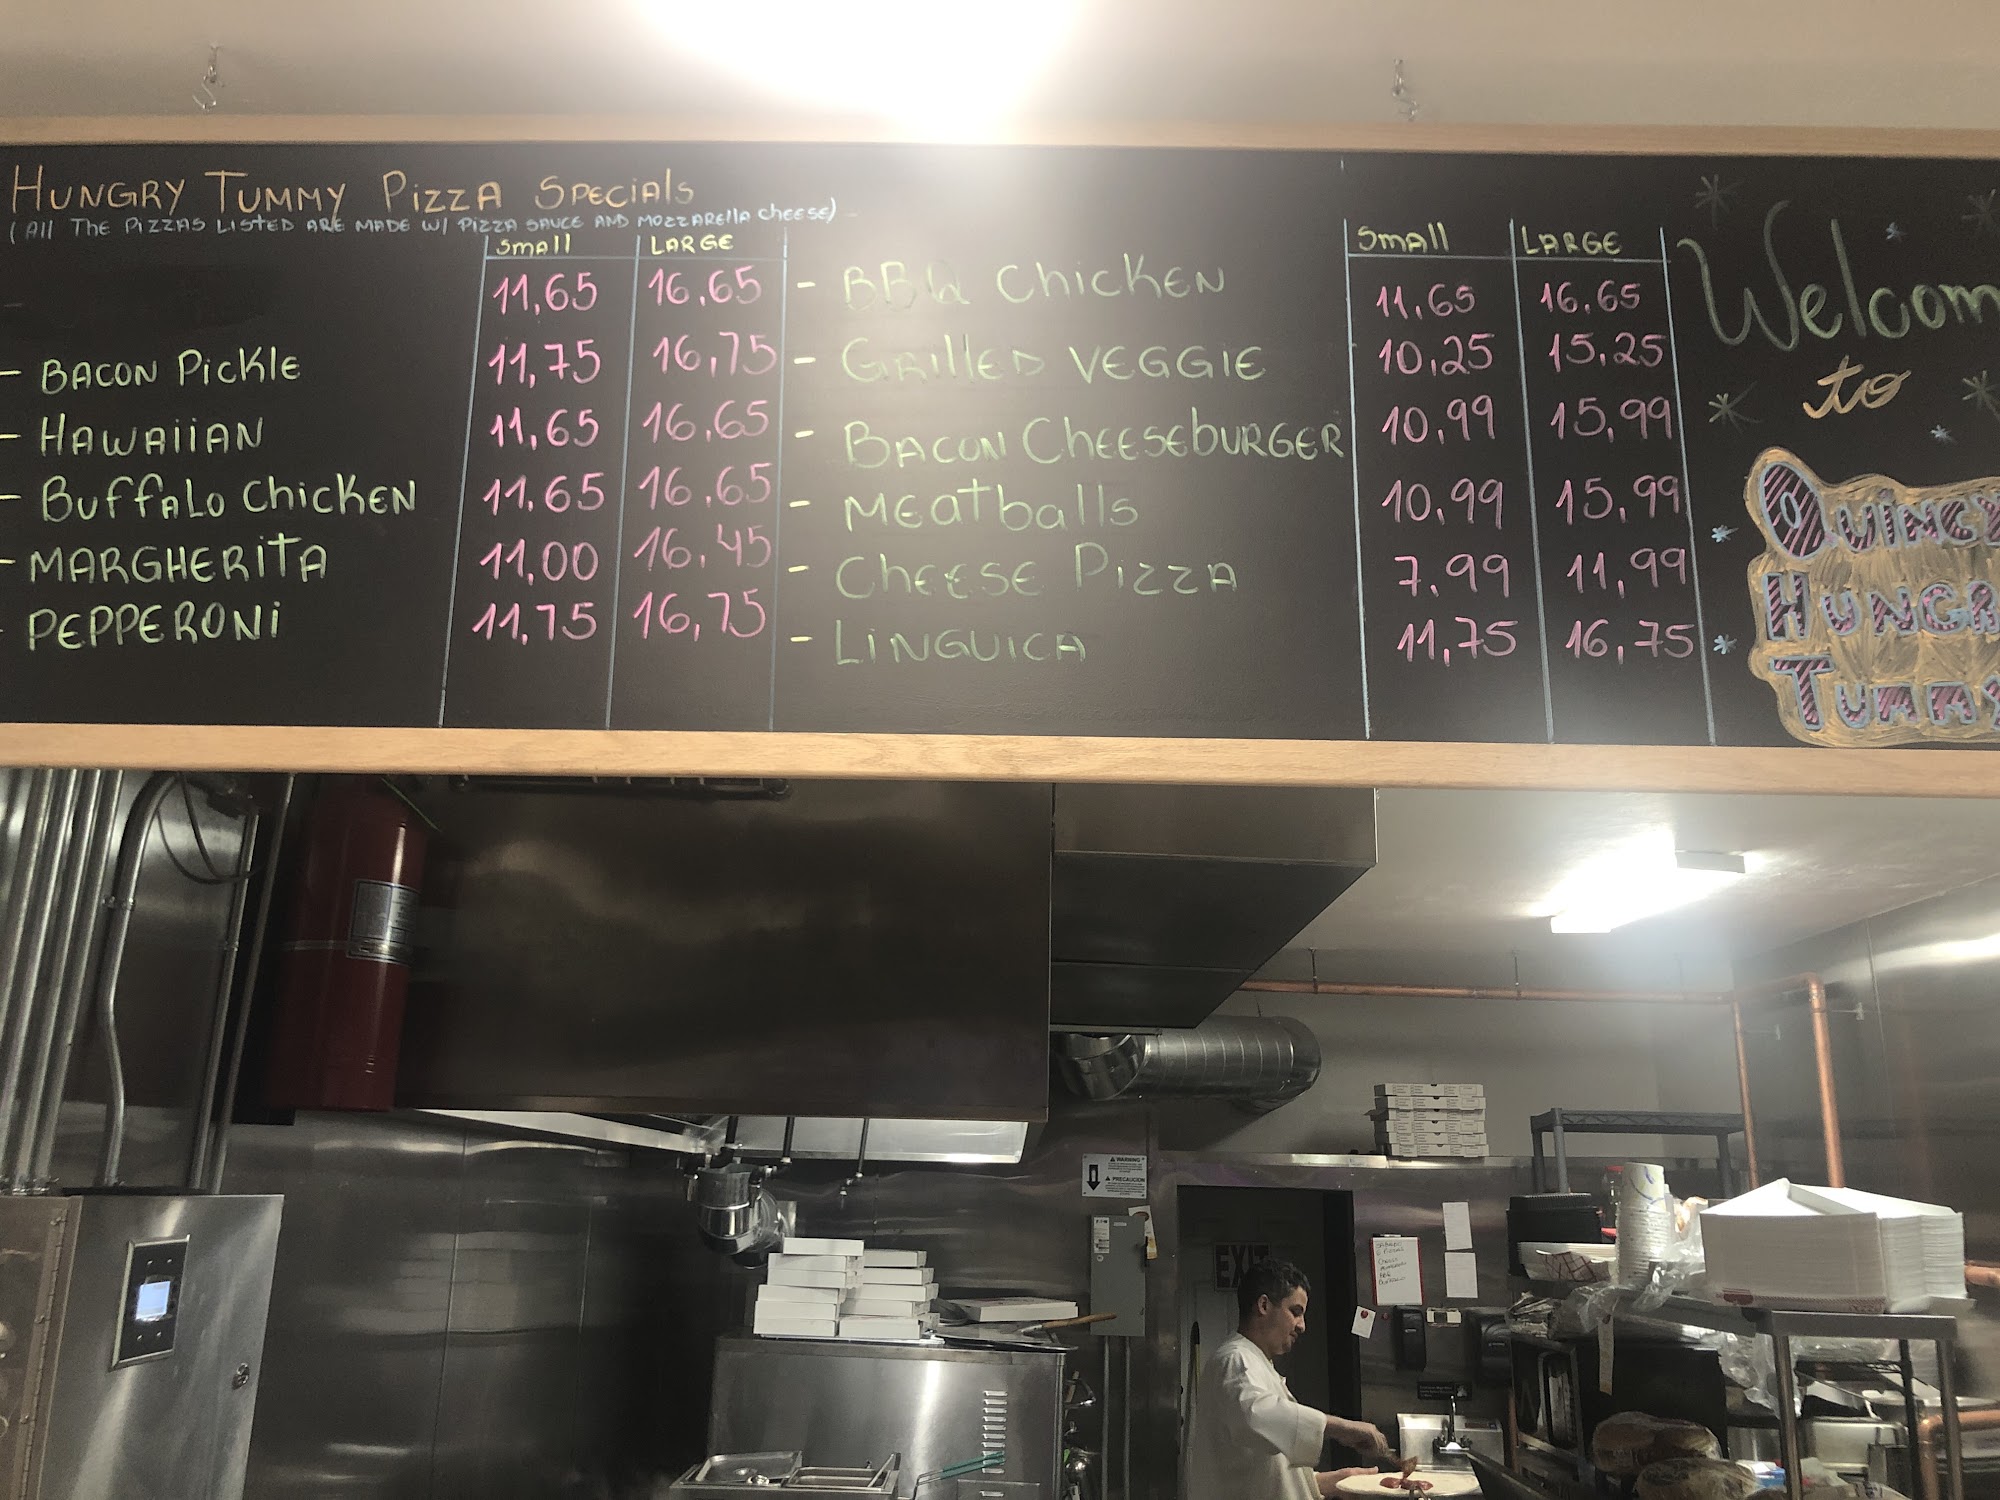 Hungry Tummy Pizza Specials
(All The Pizzas Listed are made w/ Pizza sauce and Mozzarella cheese)
Small LARGE
11,65 16,65
- BACON PicKlE 11,75 16,75
- HAWAiiAN 11,65 16,65
- Buffalo ChicKEN 11,65 16,65
- MARGHERiTA 11,00 16,45
- PEPPERONi 11,75 16,75
Small LARGE
- BBQ ChicKEN 11,65 16,65
- GRillED VEGGIE 10,25 15,25
- BACON CheesebuRGER 10,99 15,99
- MEatballs 10,99 15,99
- ChEESE Pizza 7.99 11,99
- LiNGUiCA 11,75 16,75
Welcom
to
Quincy
Hungr
Tummy
WARNING
PRECAUCION
EXIT